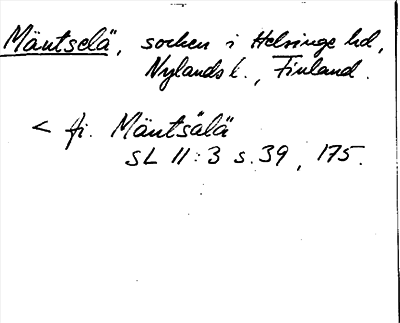 Mäntselä, socken i Helsinge hd,
Nylands l., Finland.
< fi. Mäntsälä
SL 11:3 s. 39, 175.